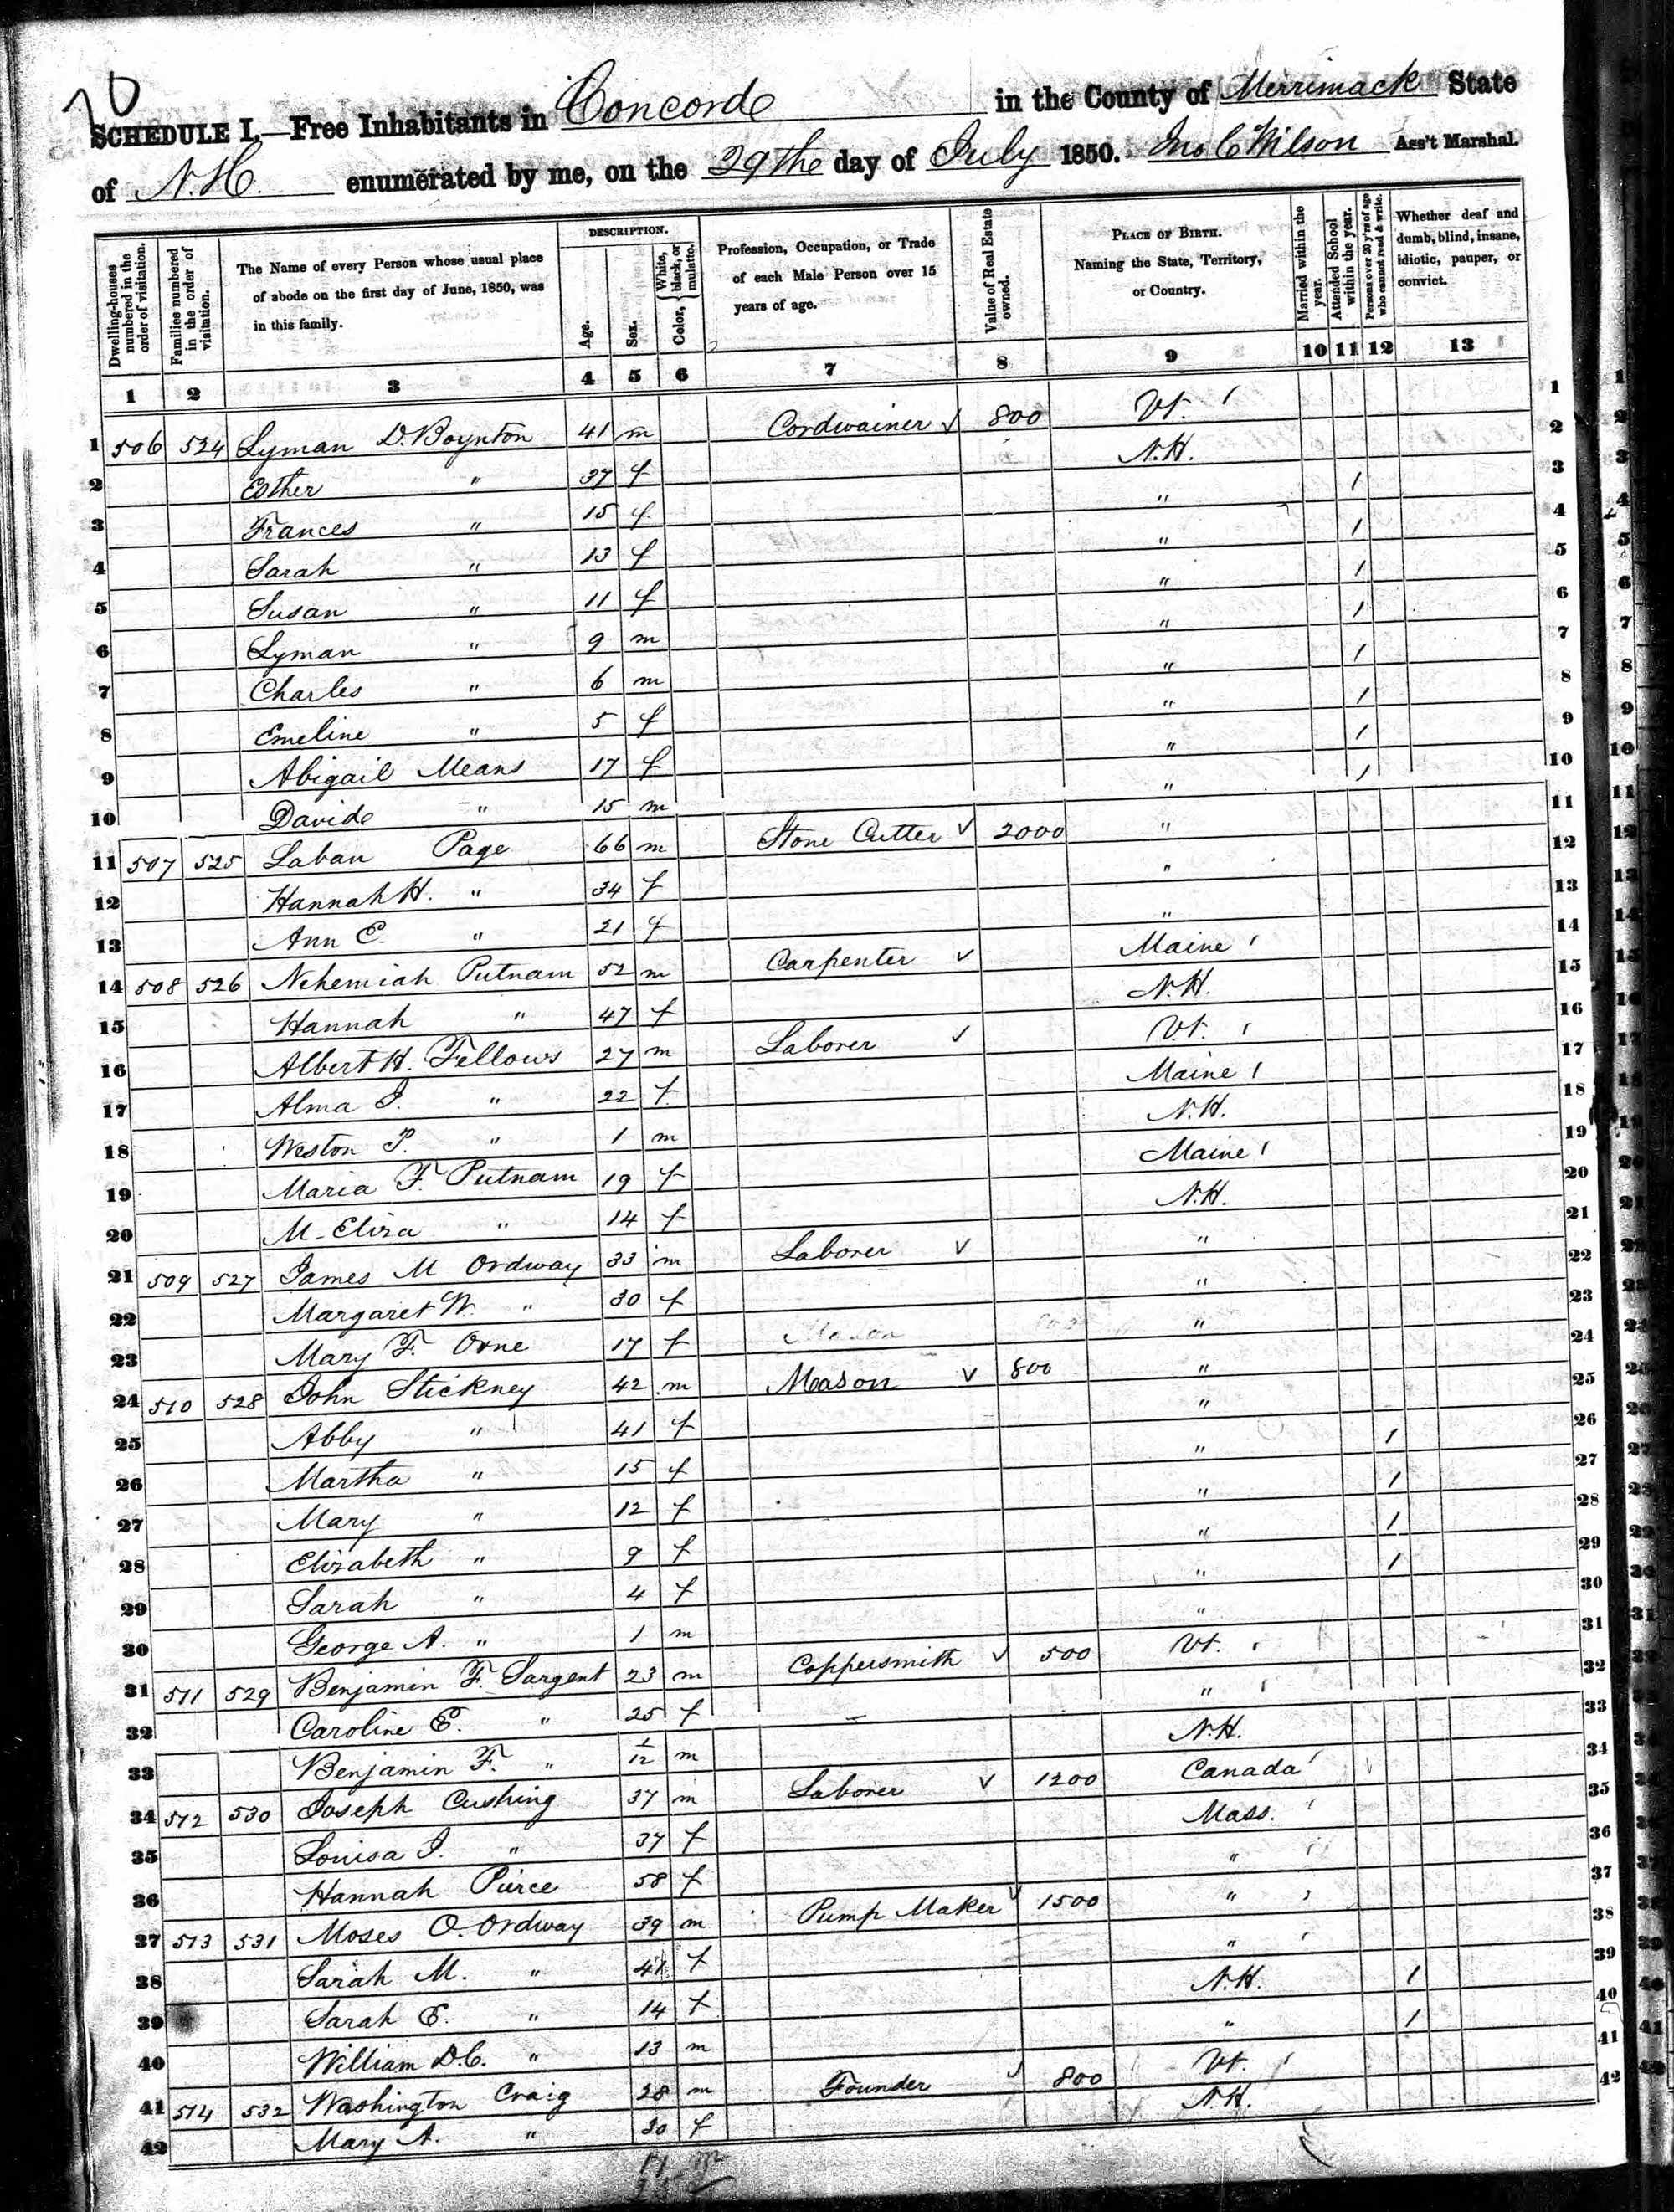 70
SCHEDULE I.—Free Inhabitants in Concord in the County of Merrimack State
of N.H. enumerated by me, on the 29th day of July 1850. Jno C Wilson Ass't Marshal.
Dwelling-houses numbered in the order of visitation.
Families numbered in the order of visitation.
The Name of every Person whose usual place of abode on the first day of June, 1850, was in this family.
DESCRIPTION.
Age.
Sex.
Color, { White, black, or mulatto.
Profession, Occupation, or Trade of each Male Person over 15 years of age.
Value of Real Estate owned.
PLACE OF BIRTH. Naming the State, Territory, or Country.
Married within the year.
Attended School within the year.
Persons over 20 y'rs of age who cannot read & write.
Whether deaf and dumb, blind, insane, idiotic, pauper, or convict.
1 2 3 4 5 6 7 8 9 10 11 12 13
1 506 524 Lyman D. Boynton 41 m Cordwainer ✓ 800 Vt. ' 1
2 Esther " 37 f N.H. 2
3 Frances " 15 f " 1 3
4 Sarah " 13 f " 1 4
5 Susan " 11 f " 1 5
6 Lyman " 9 m " 1 6
7 Charles " 6 m " 1 7
8 Emeline " 5 f " 1 8
9 Abigail Means 17 f " 1 9
10 David " 15 m " 1 10
11 507 525 Laban Page 66 m Stone Cutter ✓ 2000 " 11
12 Hannah H. " 34 f " 12
13 Ann E. " 21 f " 13
14 508 526 Nehemiah Putnam 52 m Carpenter ✓ Maine ' 14
15 Hannah " 47 f N.H. 15
16 Albert H. Fellows 27 m Laborer ✓ Vt. ' 16
17 Alma J. " 22 f Maine ' 17
18 Weston P. " 1 m N.H. 18
19 Maria F. Putnam 19 f Maine ' 19
20 M. Eliza " 14 f N.H. 20
21 509 527 James M Ordway 33 m Laborer ✓ " 21
22 Margaret W. " 30 f " 22
23 Mary F. Orne 17 f " 23
24 510 528 John Stickney 42 m Mason ✓ 800 " 24
25 Abby " 41 f " 25
26 Martha " 15 f " 1 26
27 Mary " 12 f " 1 27
28 Elizabeth " 9 f " 1 28
29 Sarah " 4 f " 1 29
30 George A. " 1 m " 30
31 511 529 Benjamin F. Sargent 23 m Coppersmith ✓ 500 Vt. ' 31
32 Caroline E. " 25 f " ' 32
33 Benjamin F. " 1/12 m N.H. 33
34 512 530 Joseph Cushing 37 m Laborer ✓ 1200 Canada ' 34
35 Louisa J. " 37 f Mass. ' 35
36 Hannah Pierce 58 f " ' 36
37 513 531 Moses O. Ordway 39 m Pump Maker ✓ 1500 " ' 37
38 Sarah M. " 41 f " ' 38
39 Sarah E. " 14 f N.H. 1 39
40 William D.C. " 13 m " 1 40
41 514 532 Washington Craig 28 m Founder ✓ 800 Vt. ' 41
42 Mary A. " 30 f N.H. 42
17 m